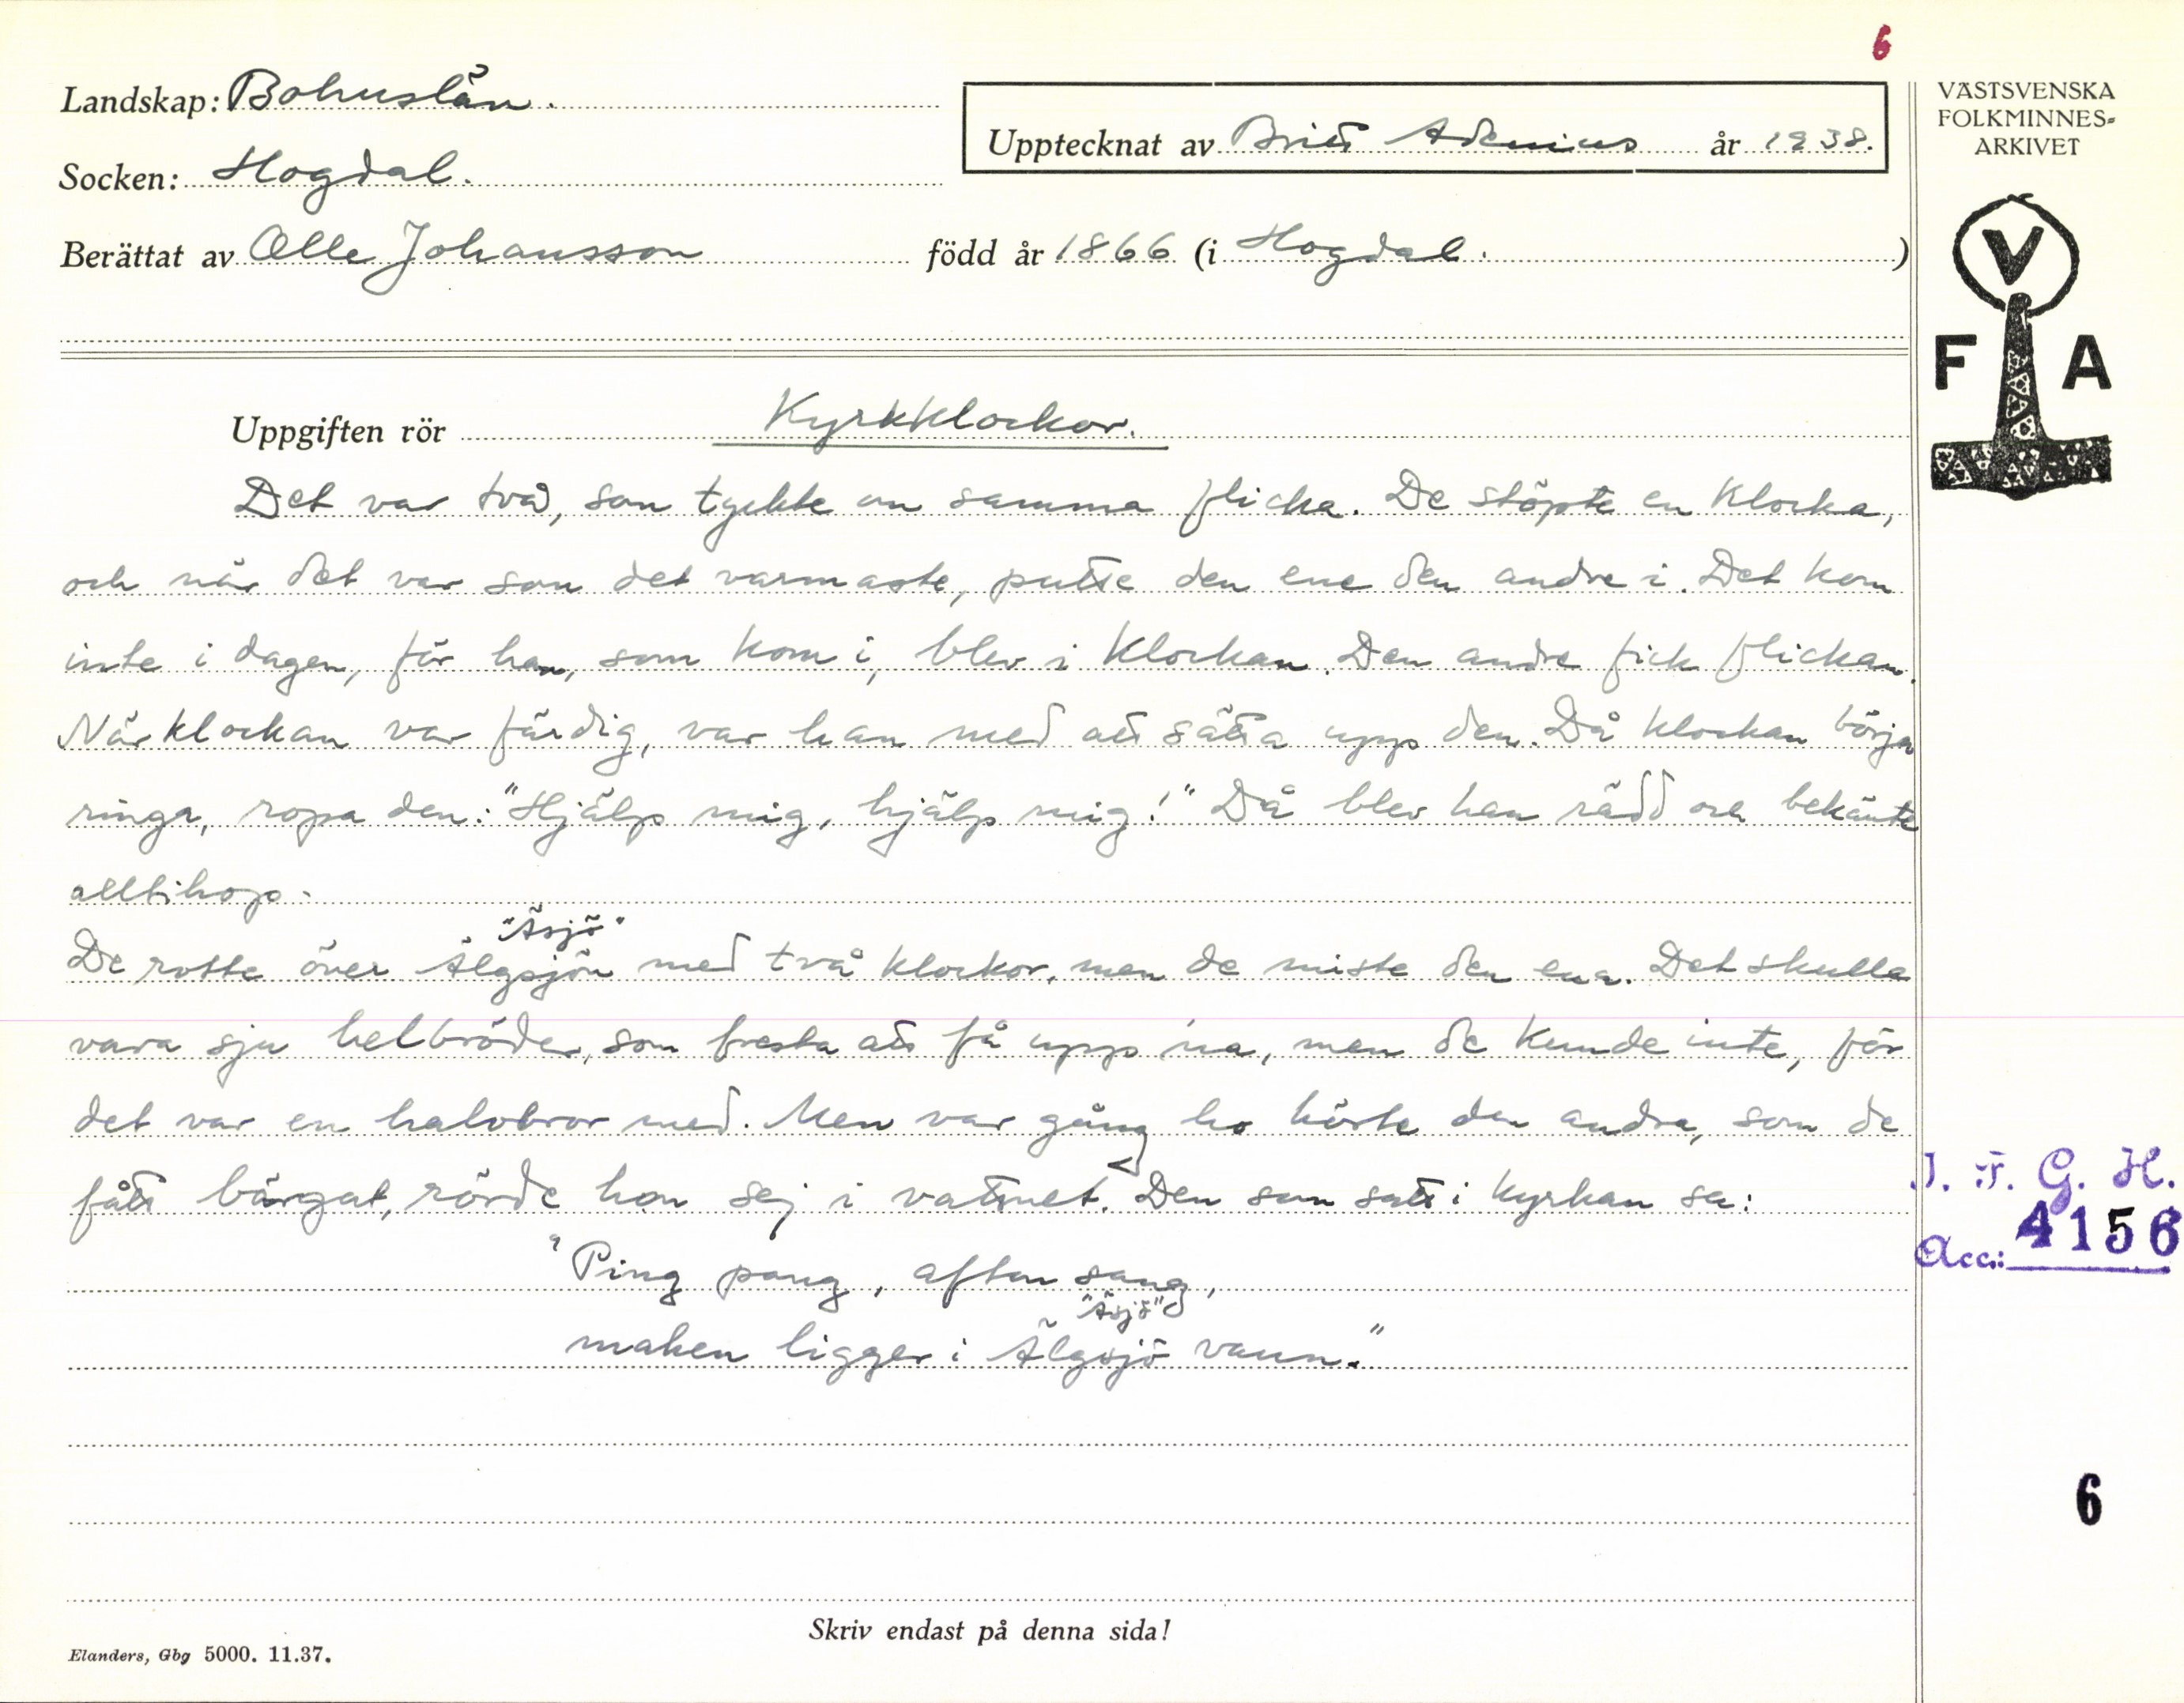 6
Landskap: Bohuslän.
Upptecknat av Britt Adenius år 1938.
Socken: Hogdal.
Berättat av Olle Johansson född år 1866 (i Hogdal. )
VÄSTSVENSKA
FOLKMINNES-
ARKIVET
V
F A
Uppgiften rör Kyrkklockor.
Det var två, som tyckte om samma flicka. De stöpte en klocka,
och när det var som det varmaste, putte den ene den andre i. Det kom
inte i dagen, för han, som kom i, blev i klockan. Den andre fick flickan.
När klockan var färdig, var han med att sätta upp den. Då klockan börja
ringa, ropa den: "Hjälp mig, hjälp mig!" Då blev han rädd och bekänte
alltihop.
"Äsjö"
De rodde över Älgsjön med två klockor, men de miste den ena. Det skulle
vara sju helbröder, som fresta att få upp 'na, men de kunde inte, för
det var en halvbror med. Men var gång ho hörte den andra, som de
fått bärgat, rörde hon sej i vattnet. Den som satt i kyrkan sa:
"Ping pang, afton sang,
"Äsjö"
maken ligger i Älgsjö vann."
J. F. G. H.
Acc.: 4156
6
Skriv endast på denna sida!
Elanders, Gbg 5000. 11.37.